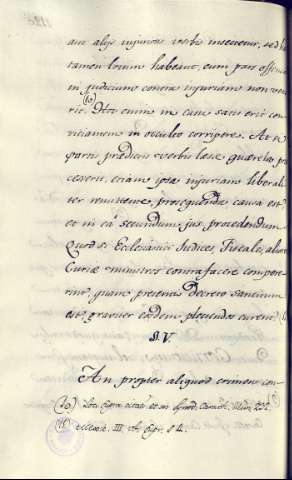 aut alijs injuriosis verbis insectetur, sed h
tamen locum habeant, cum pars offens
in judicium contra injuriam non vene
rit. (10) Hoc enim in casu satis erit con
viciantem in occulto corripere. At si
pars prædictis verbis læsa querelas pro
cesserit, etiam ipsa injuriam liberali
ter remittente, prosequenda causa est
et in ea secundum jus procedendum
Quod si Ecclesiastici Judices, Fiscales, alios
Curiæ ministros contrafacere compere
rint, quam presenti Decreto sancitum
est, graviter eosdem plectendos curent.
§. V.
An propter aliquod crimen con
(10)
(11) Mexic. III.